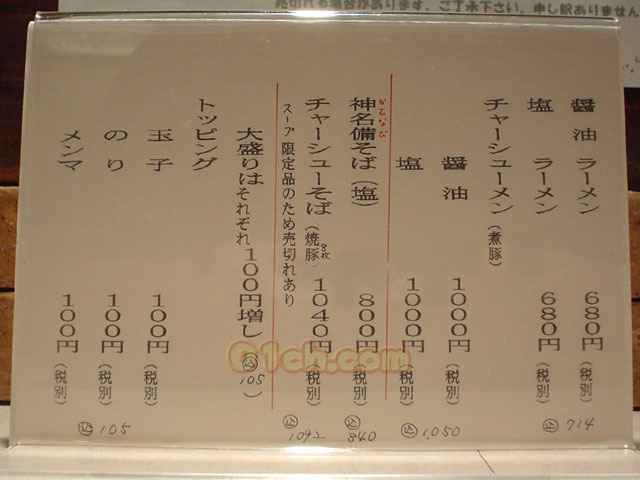 売切れる場合があります。ご了承下さい。申し訳ありません
醤油 ラーメン 680円(税別)
塩 ラーメン 680円(税別)
込 714
チャーシューメン(煮豚)
醤油 1000円(税別)
塩 1000円(税別)
込 1,050
神名備そば(塩) 800円(税別)
かむなび
込 840
チャーシューそば(焼豚8枚) 1040円(税別)
込 1092
スープ限定品のため売切れあり
大盛りはそれぞれ100円増し(込105)
トッピング
玉子 100円(税別)
のり 100円(税別)
メンマ 100円(税別)
込 105
01ch.com